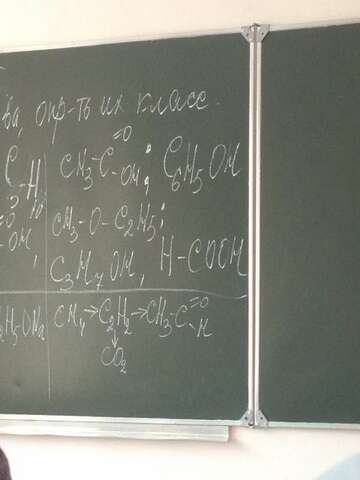 ва, опр-ть их класс.
CH3-C=O-OH, C6H5OH
CH3-O-C2H5;
C3H7OH, H-COOH
CH4→C2H2→CH3-C=O-H
↓
CO2